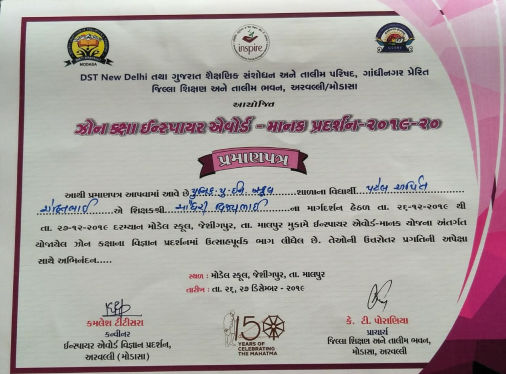 MODASA
inspire
DST New Delhi તથા ગુજરાત શૈક્ષણિક સંશોધન અને તાલીમ પરિષદ, ગાંધીનગર પ્રેરિત
જિલ્લા શિક્ષણ અને તાલીમ ભવન, અરવલ્લી/મોડાસા
આયોજિત
ઝોન કક્ષા ઈન્સ્પાયર એવોર્ડ -માનક પ્રદર્શન-૨૦૧૯-૨૦
પ્રમાણપત્ર
આથી પ્રમાણપત્ર આપવામાં આવે છે શાળાના વિદ્યાર્થી પટેલ
એ શિક્ષકશ્રી ચૌધરી ના માર્ગદર્શન હેઠળ તા. ૨૬-૧૨-૨૦૧૯ થી
તા. ૨૭-૧૨-૨૦૧૯ દરમ્યાન મોડેલ સ્કૂલ, જેશીંગપુર, તા. માલપુર મુકામે ઈન્સ્પાયર એવોર્ડ-માનક યોજના અંતર્ગત
યોજાયેલ ઝોન કક્ષાના વિજ્ઞાન પ્રદર્શનમાં ઉત્સાહપૂર્વક ભાગ લીધેલ છે. તેઓની ઉત્તરોત્તર પ્રગતિની અપેક્ષા
સાથે અભિનંદન.....
સ્થળ : મોડેલ સ્કૂલ, જેશીંગપુર, તા. માલપુર
તારીખ : તા. ૨૬, ૨૭ ડિસેમ્બર - ૨૦૧૯
કમલેશ ટીટીસરા
કન્વીનર
ઈન્સ્પાયર એવોર્ડ વિજ્ઞાન પ્રદર્શન,
અરવલ્લી (મોડાસા)
150
YEARS OF
CELEBRATING
THE MAHATMA
કે. ટી. પોરાણિયા
પ્રાચાર્ય
જિલ્લા શિક્ષણ અને તાલીમ ભવન,
મોડાસા, અરવલ્લી